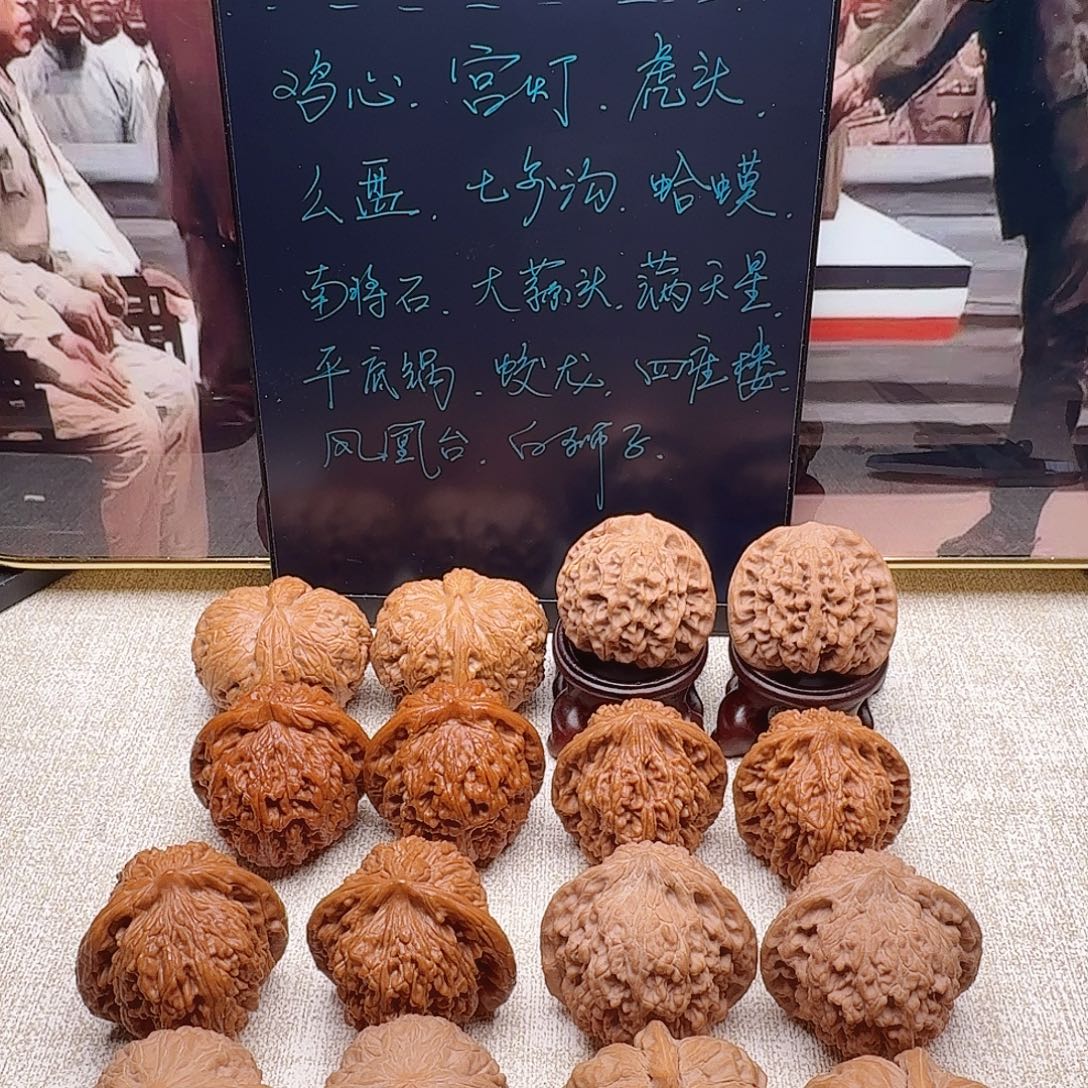 鸡心. 宫灯. 虎头.
么匪. 七分沟. 蛤蟆.
南将石. 大蒜头. 满天星.
平底锅. 蛟龙. 四座楼.
凤凰台. 白狮子.